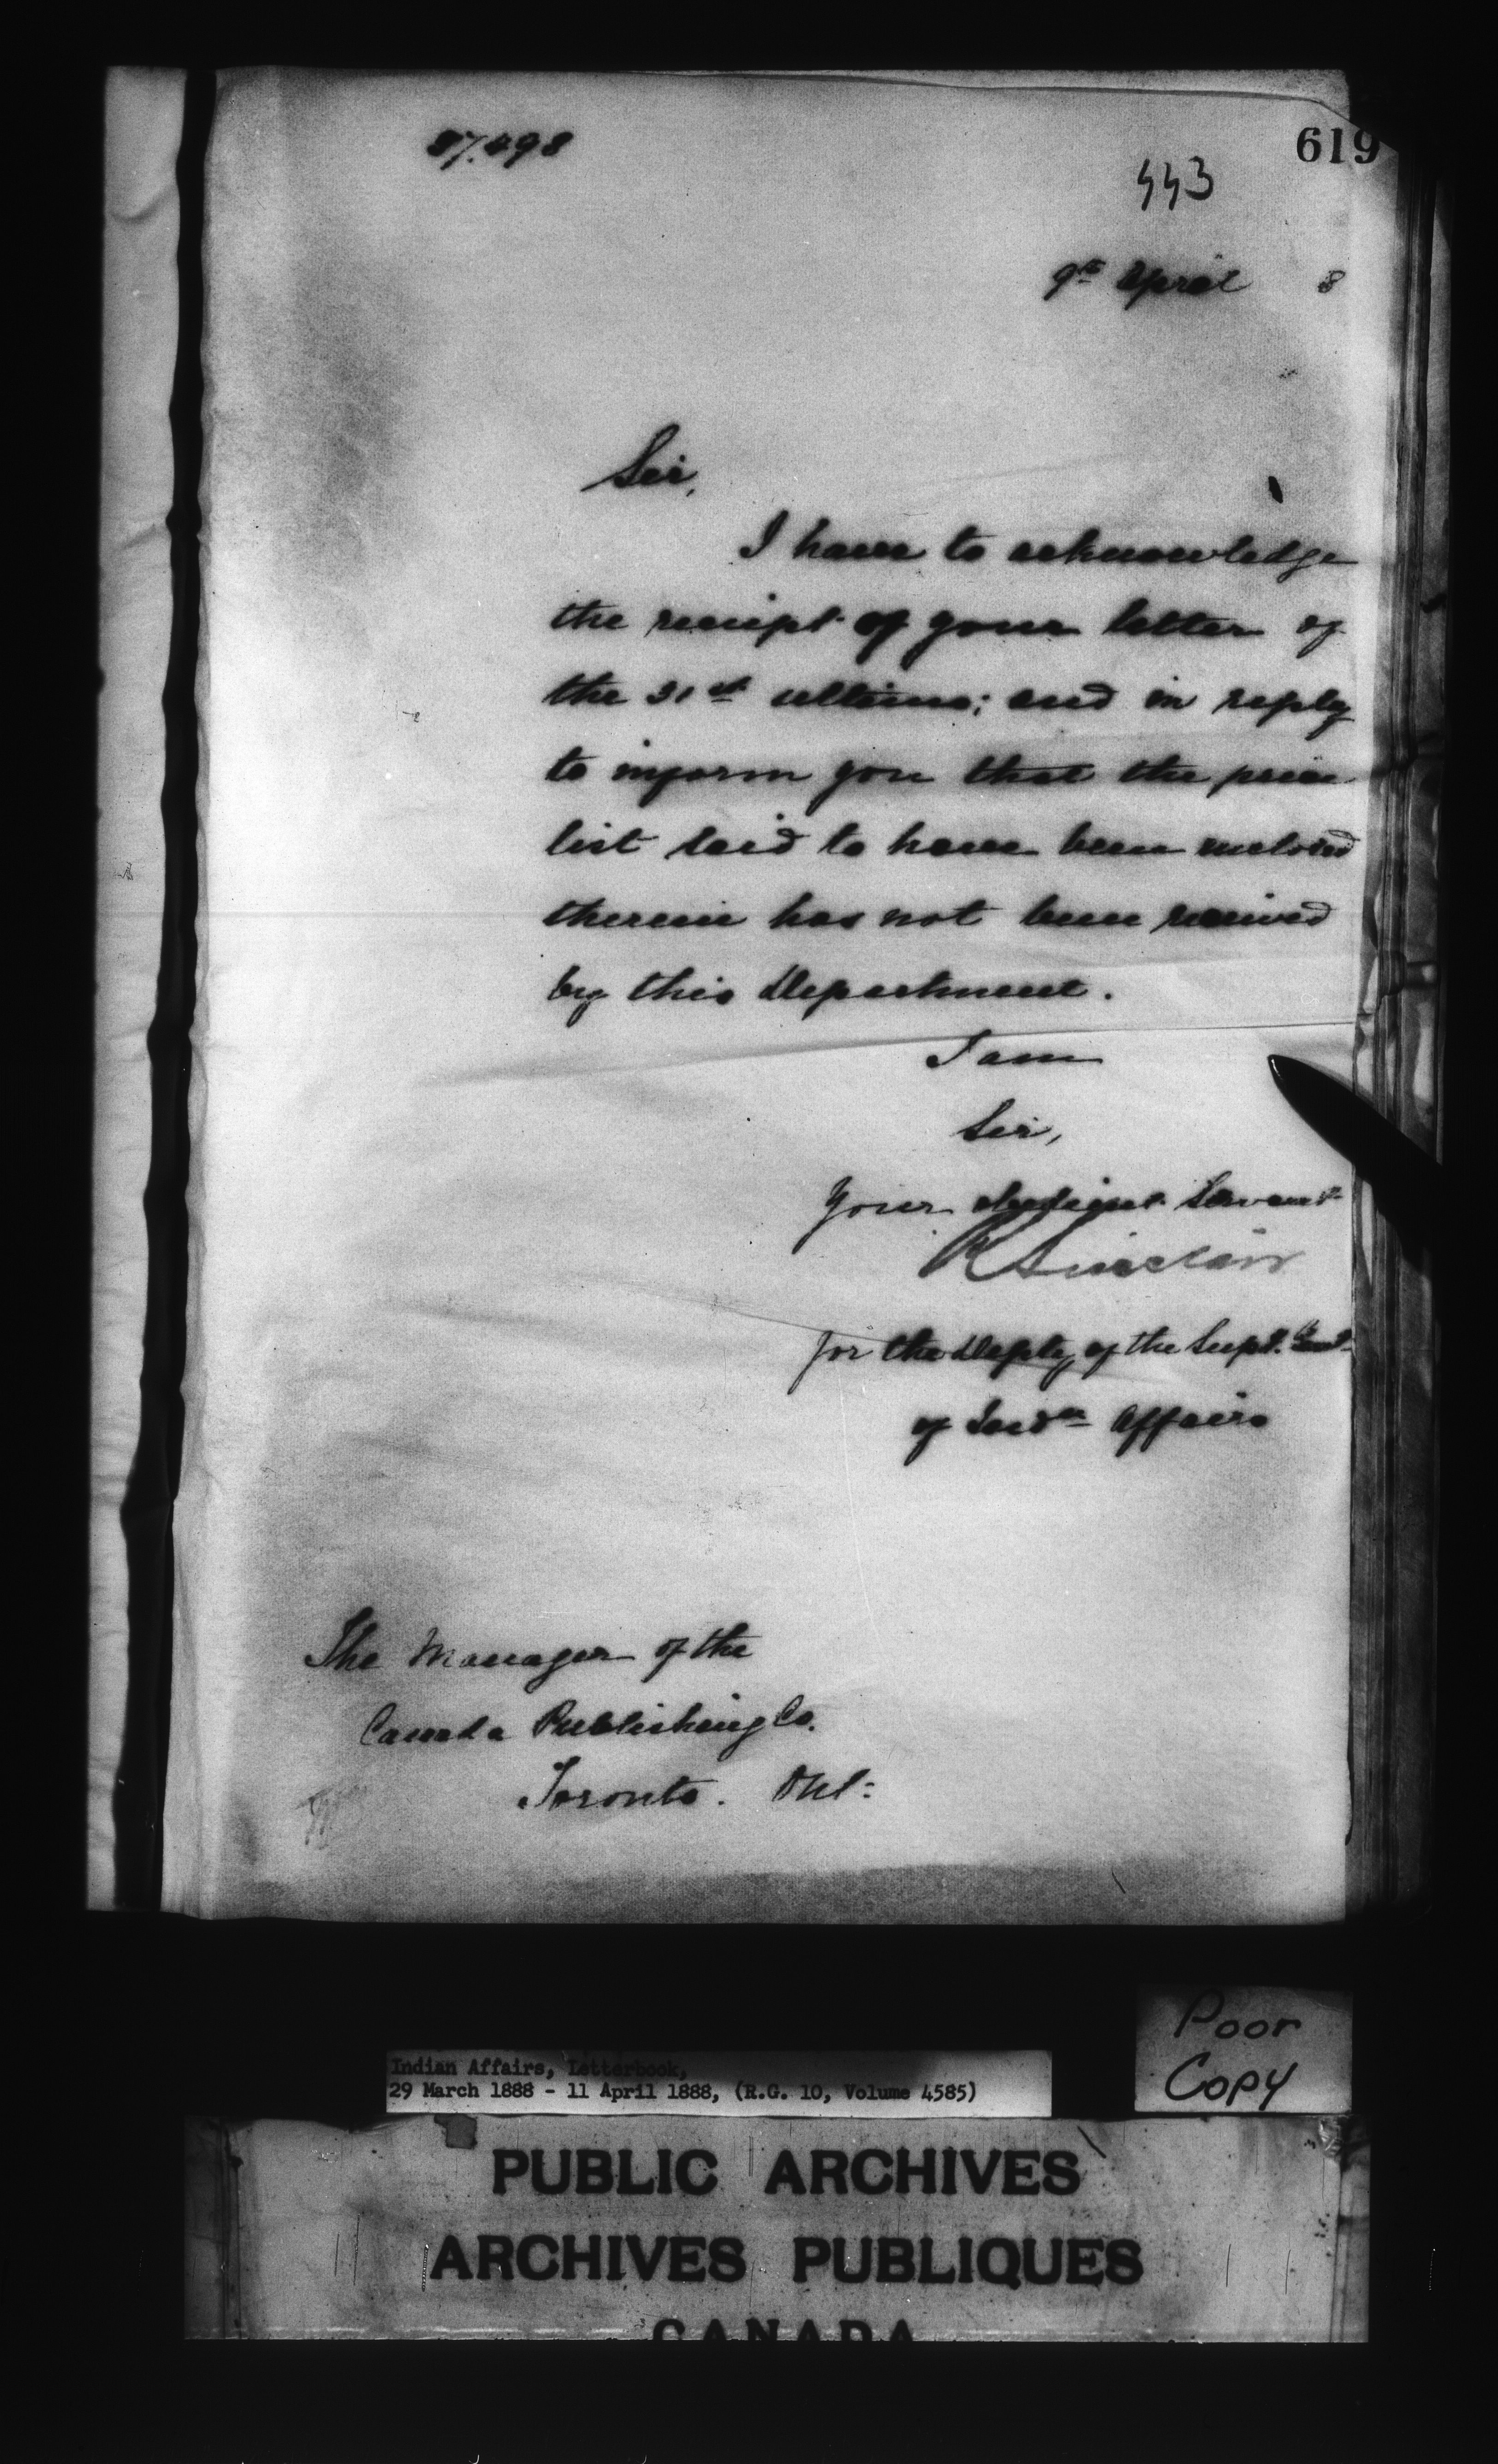 87.498
619
443
9th April 8
Sir,
I have to acknowledge
the receipt of your letter of
the 31st ultimo; and in reply
to inform you that the price
list said to have been enclosed
therein has not been received
by this Department.
I am
Sir,
Your obedient Servant
R Sinclair
for the Depty of the Supt. Genl
of Indn Affairs
The Manager of the
Canada Publishing Co.
Toronto. Ont:
Poor
Copy
Indian Affairs, Letterbook,
29 March 1888 - 11 April 1888, (R.G. 10, Volume 4585)
PUBLIC ARCHIVES
ARCHIVES PUBLIQUES
CANADA